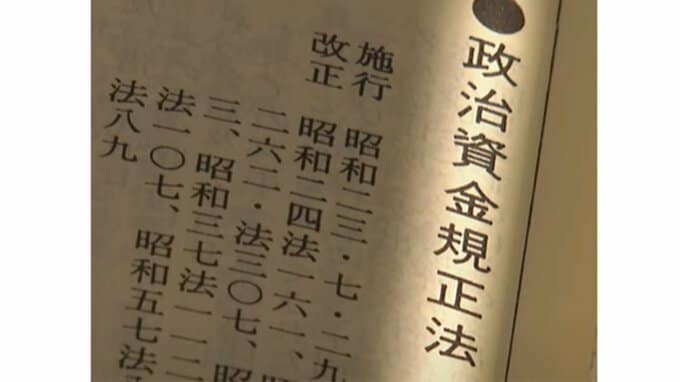 ●政治資金規正法
施行 昭和二三・七・二九
改正 昭和二四法一六一、
二六二・法三〇七、昭
三、昭和三七法一一二
法一〇七、昭和五七法
法八九